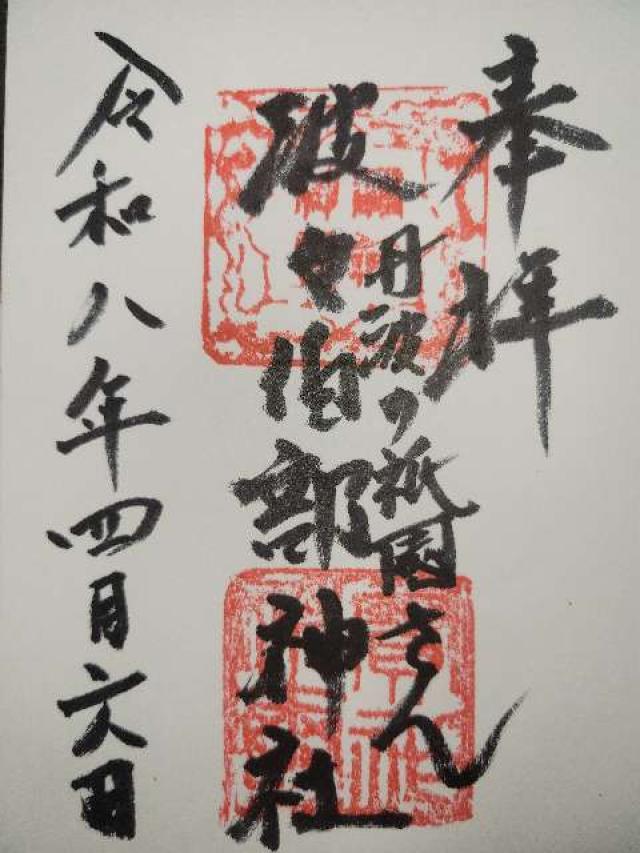 奉拝
丹波の祗園さん
波々伯部神社
令和八年四月六日